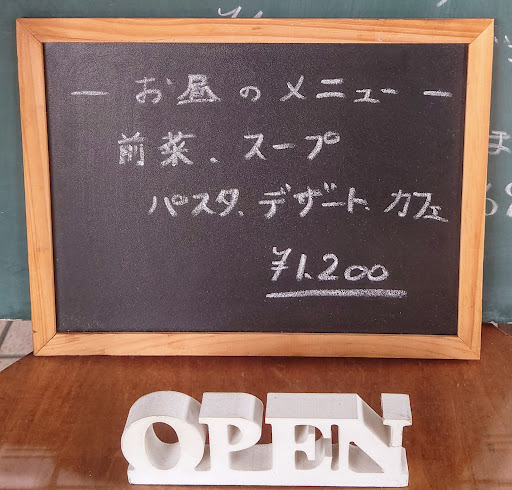 — お昼のメニュー —
前菜、スープ
パスタ、デザート、カフェ
¥1,200
OPEN